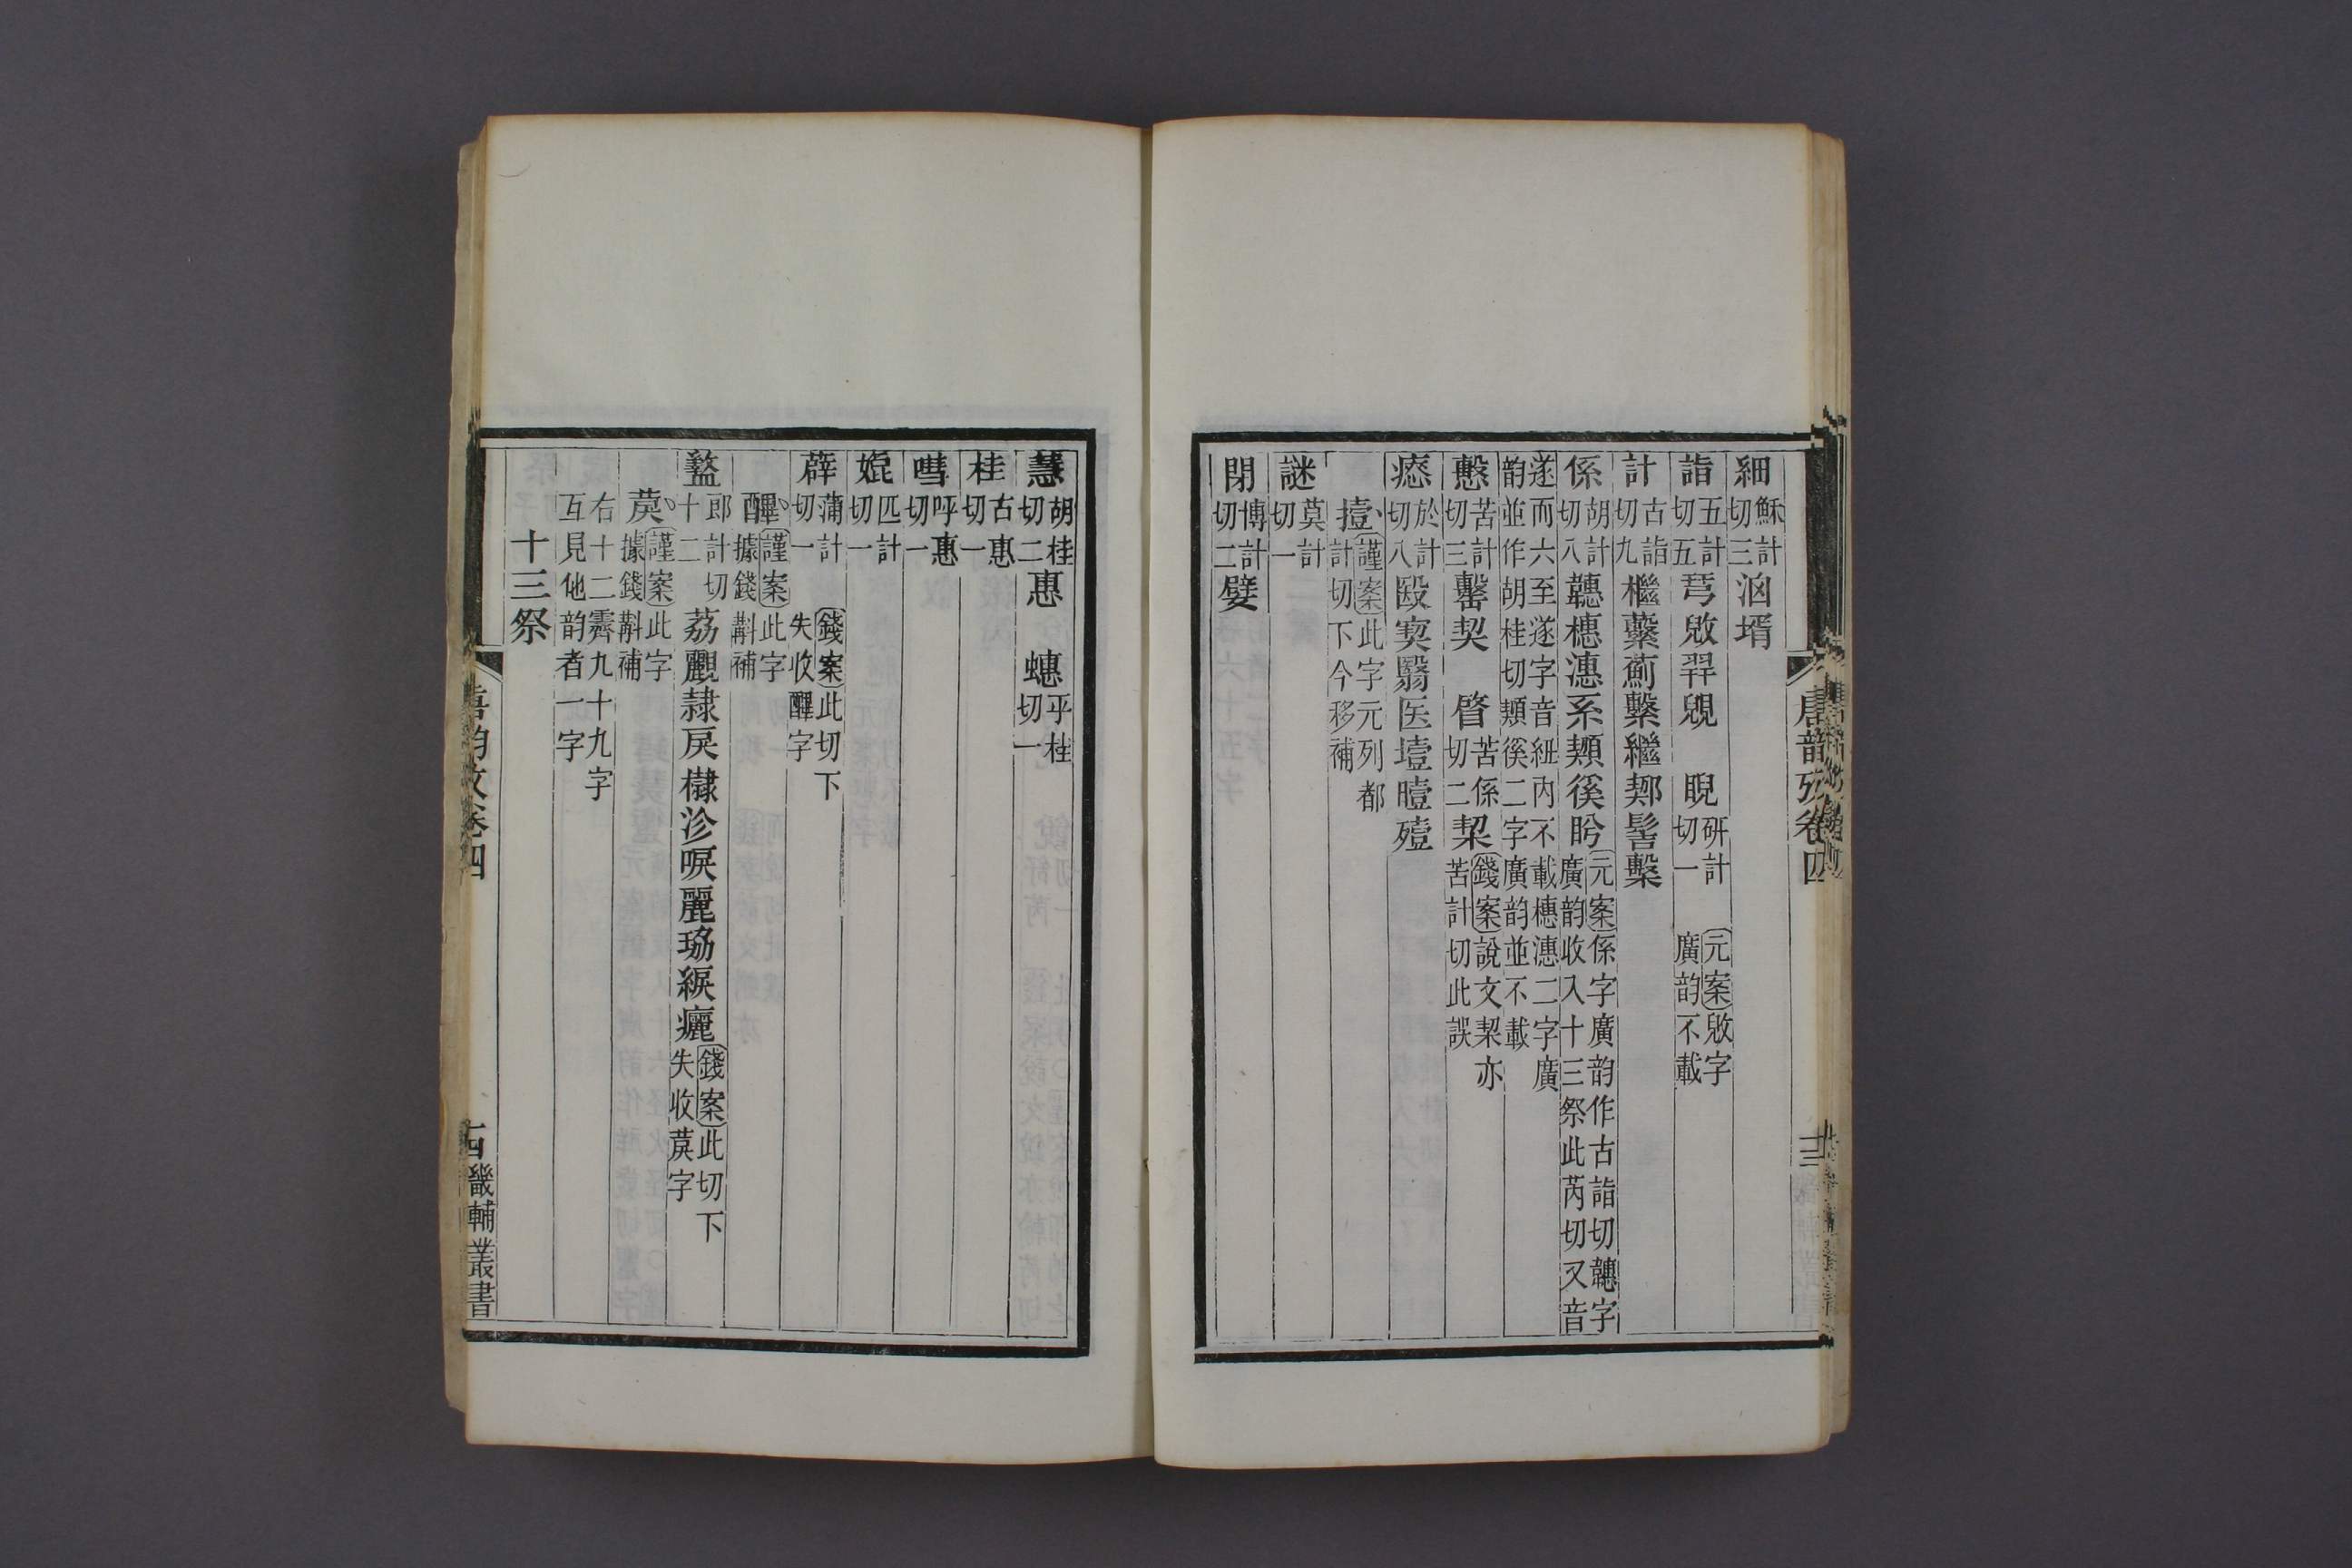 細穌計切三洫壻
詣五計切五䓖敓羿䘽 睨研計切一 元案敓字廣韵不載
計古詣切九檵虆薊繫繼郪髻檕
係胡計切八韢橞潓系䫔徯盻元案係字廣韵作古詣切韢字廣韵收入十三祭此芮切又音
遂而六至遂字音紐内不載橞潓二字廣韵並作胡桂切䫔徯二字廣韵並不載
憠苦計切三罊契 晵苦係切二栔錢案說文栔亦苦計切此誤
瘱於計切八殹窫翳医墻曀殪
撎謹案此字元列都計切下今移補
謎莫計切一
閉博計切二嬖
唐韵攷卷四
十三
慧胡桂切二惠 蟪乎桂切一
桂古惠切一
嘒呼惠切一
媲匹計切一
薜蒲計切一 錢案此切下失收䤒字
䤒謹案此字據錢斠補
盭郎計切十二荔麗隸戾欐沴唳麗珕綟癘錢案此切下失收莀字
莀謹案此字據錢斠補
右十二霽九十九字互見他韵者一字
十三祭
唐韵攷卷四
十四
畿輔叢書